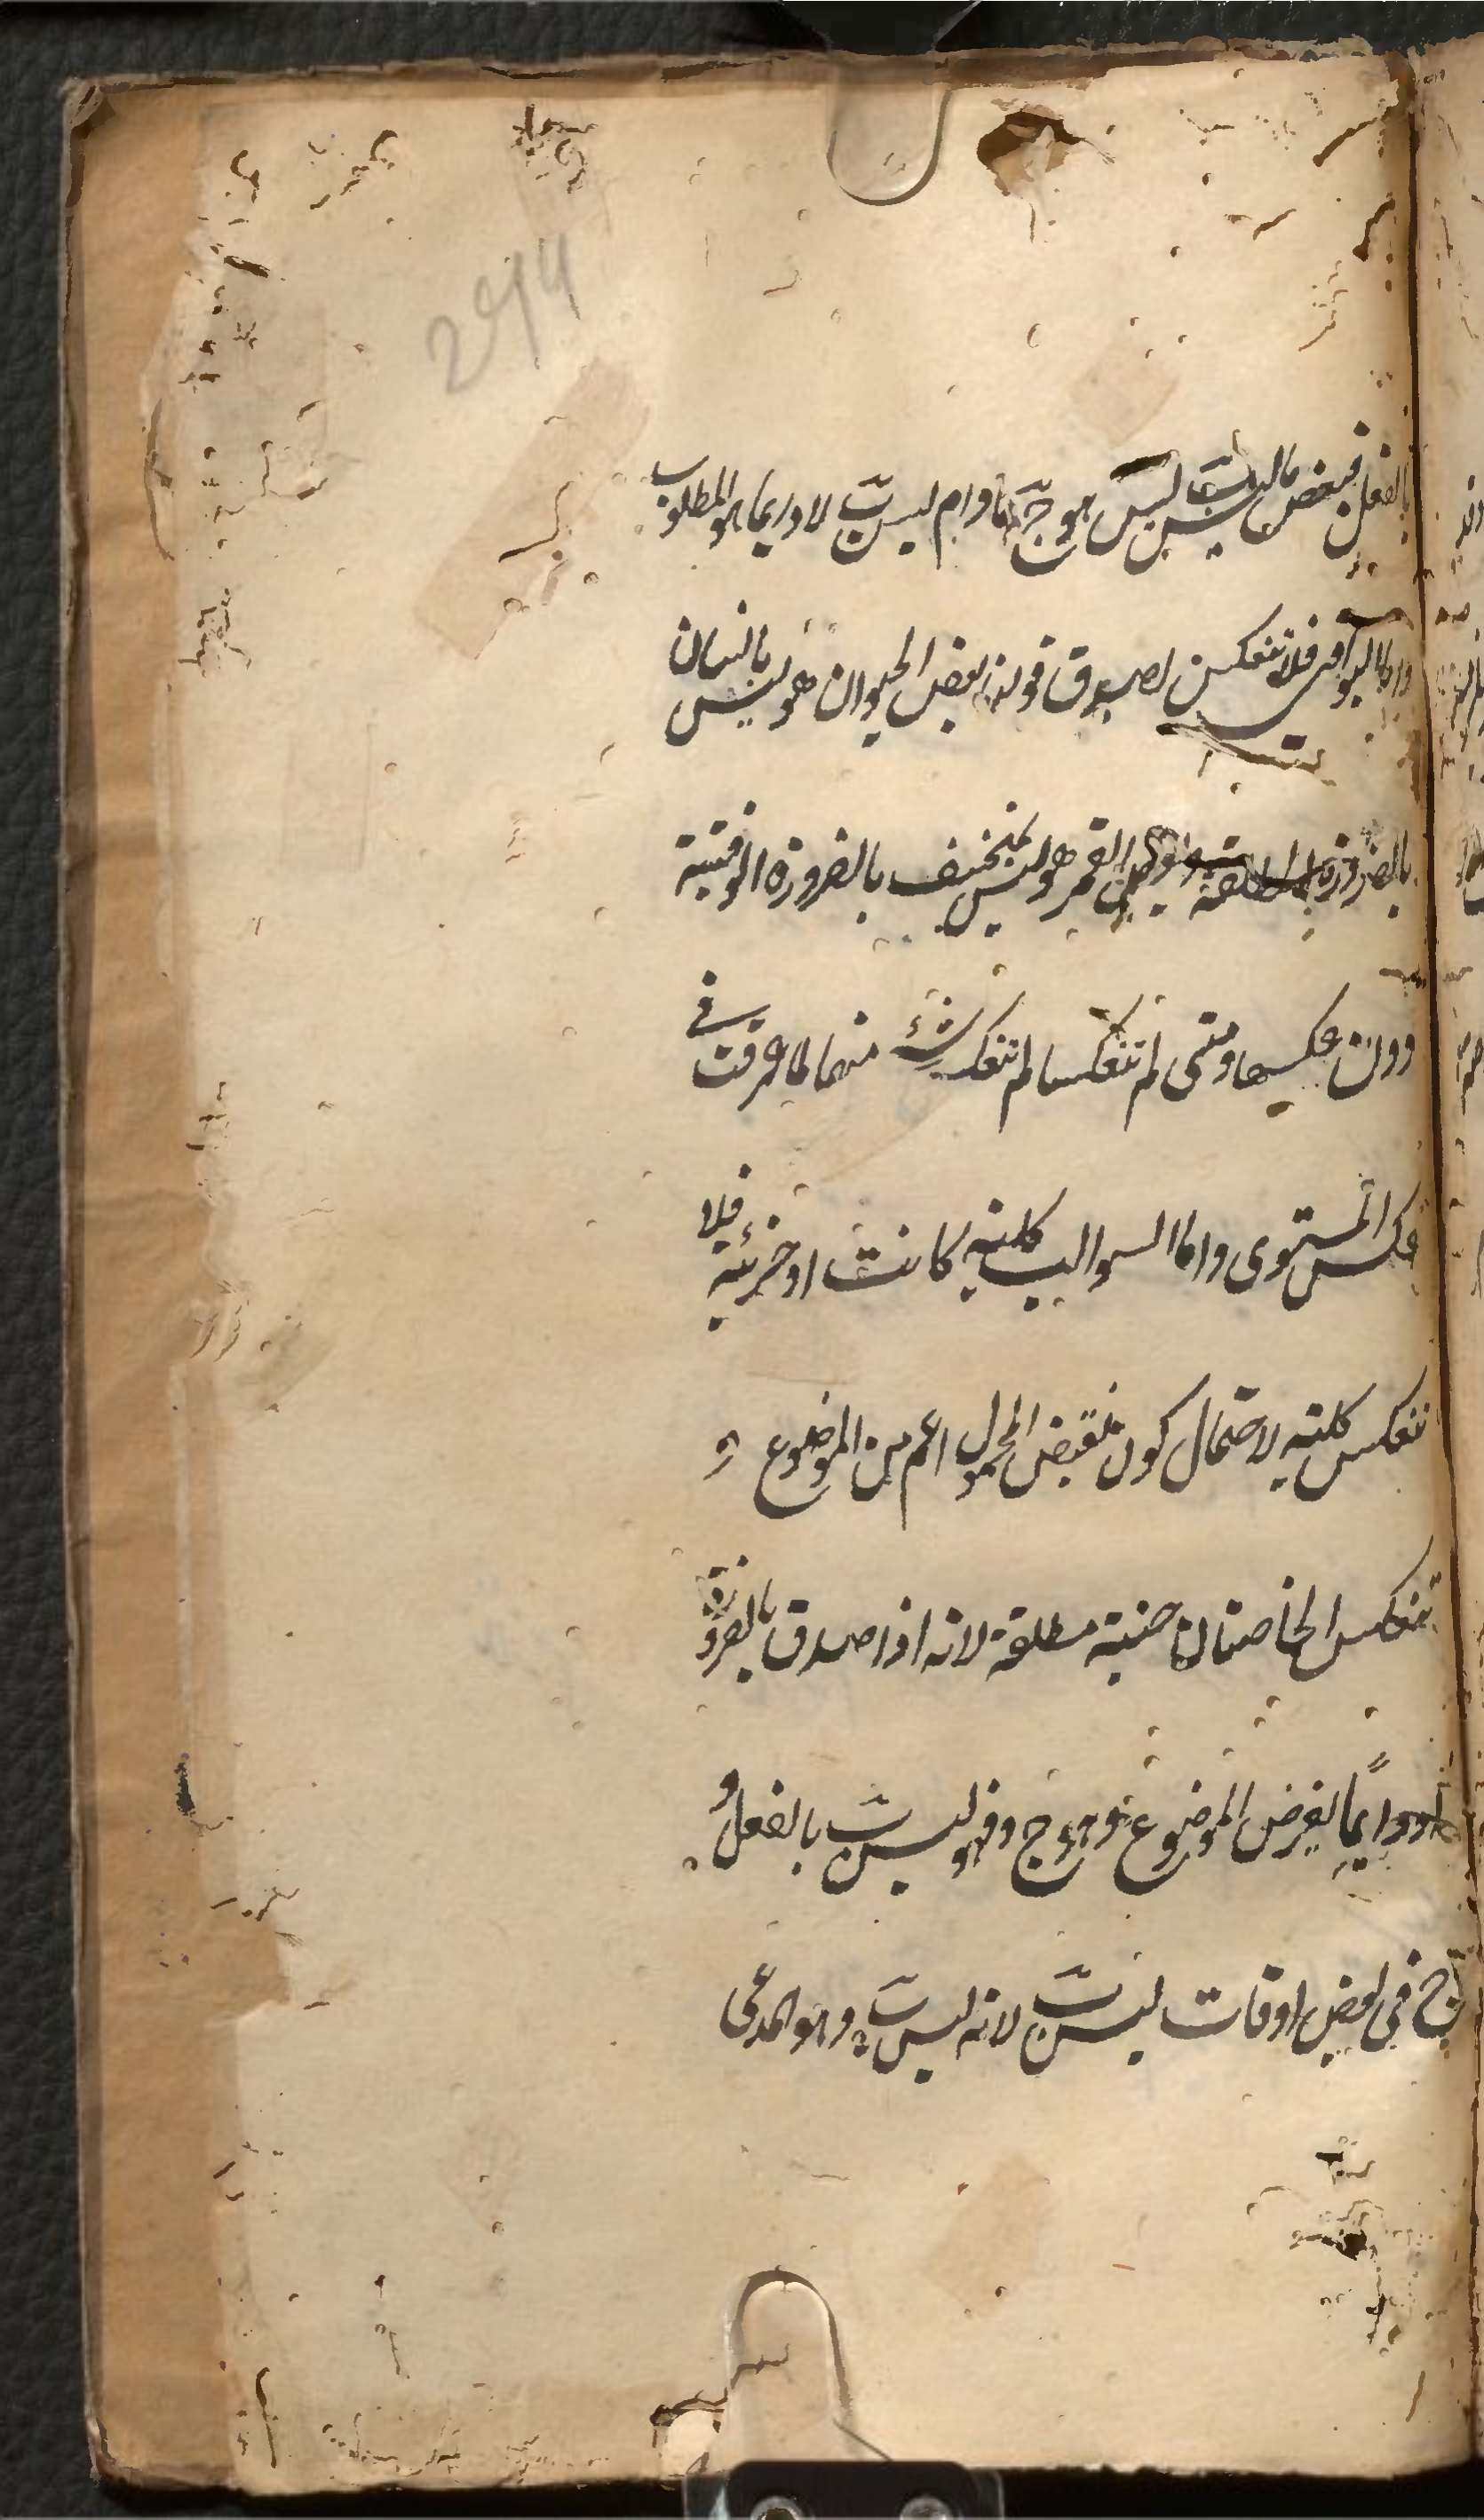 بالفعل فبعض ما ليس ب ليس هو ج ما دام ليس ب لا دايما هو المطلوب
واما البواقى فلا تنعكس لصدق قولنا بعض الحيوان هو ليس بانسان
بالضرورة المطلقة وبعض القمر هو ليس بمنخسف بالضرورة الوقتية
دون عكسيهما ومتى لم تنعكسا لم تنعكس شئ منهما لما عرفت فى
عكس المستوى واما السوالب كلية كانت او جزئية فلا
تنعكس كلية لاحتمال كون نقيض المحمول اعم من الموضوع و
تنعكس الخاصتان حينية مطلقة لانه اذا صدق بالضرورة
لا دايما يفرض الموضوع د وهو ج وفهو ليس ب بالفعل و
ج فى بعض اوقات ليس ب لانه ليس ب وهو المدعى